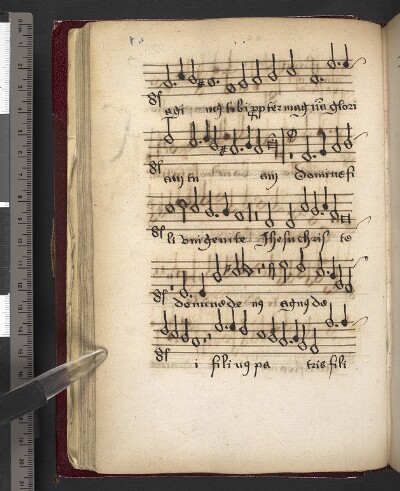 agi mꝰ tibi ꝓpter magnā glori
am tu am Domine fi
li vnigenite Jhesu chris te
domine de ꝰ agnꝰ de
i filiꝰ pa tris fili